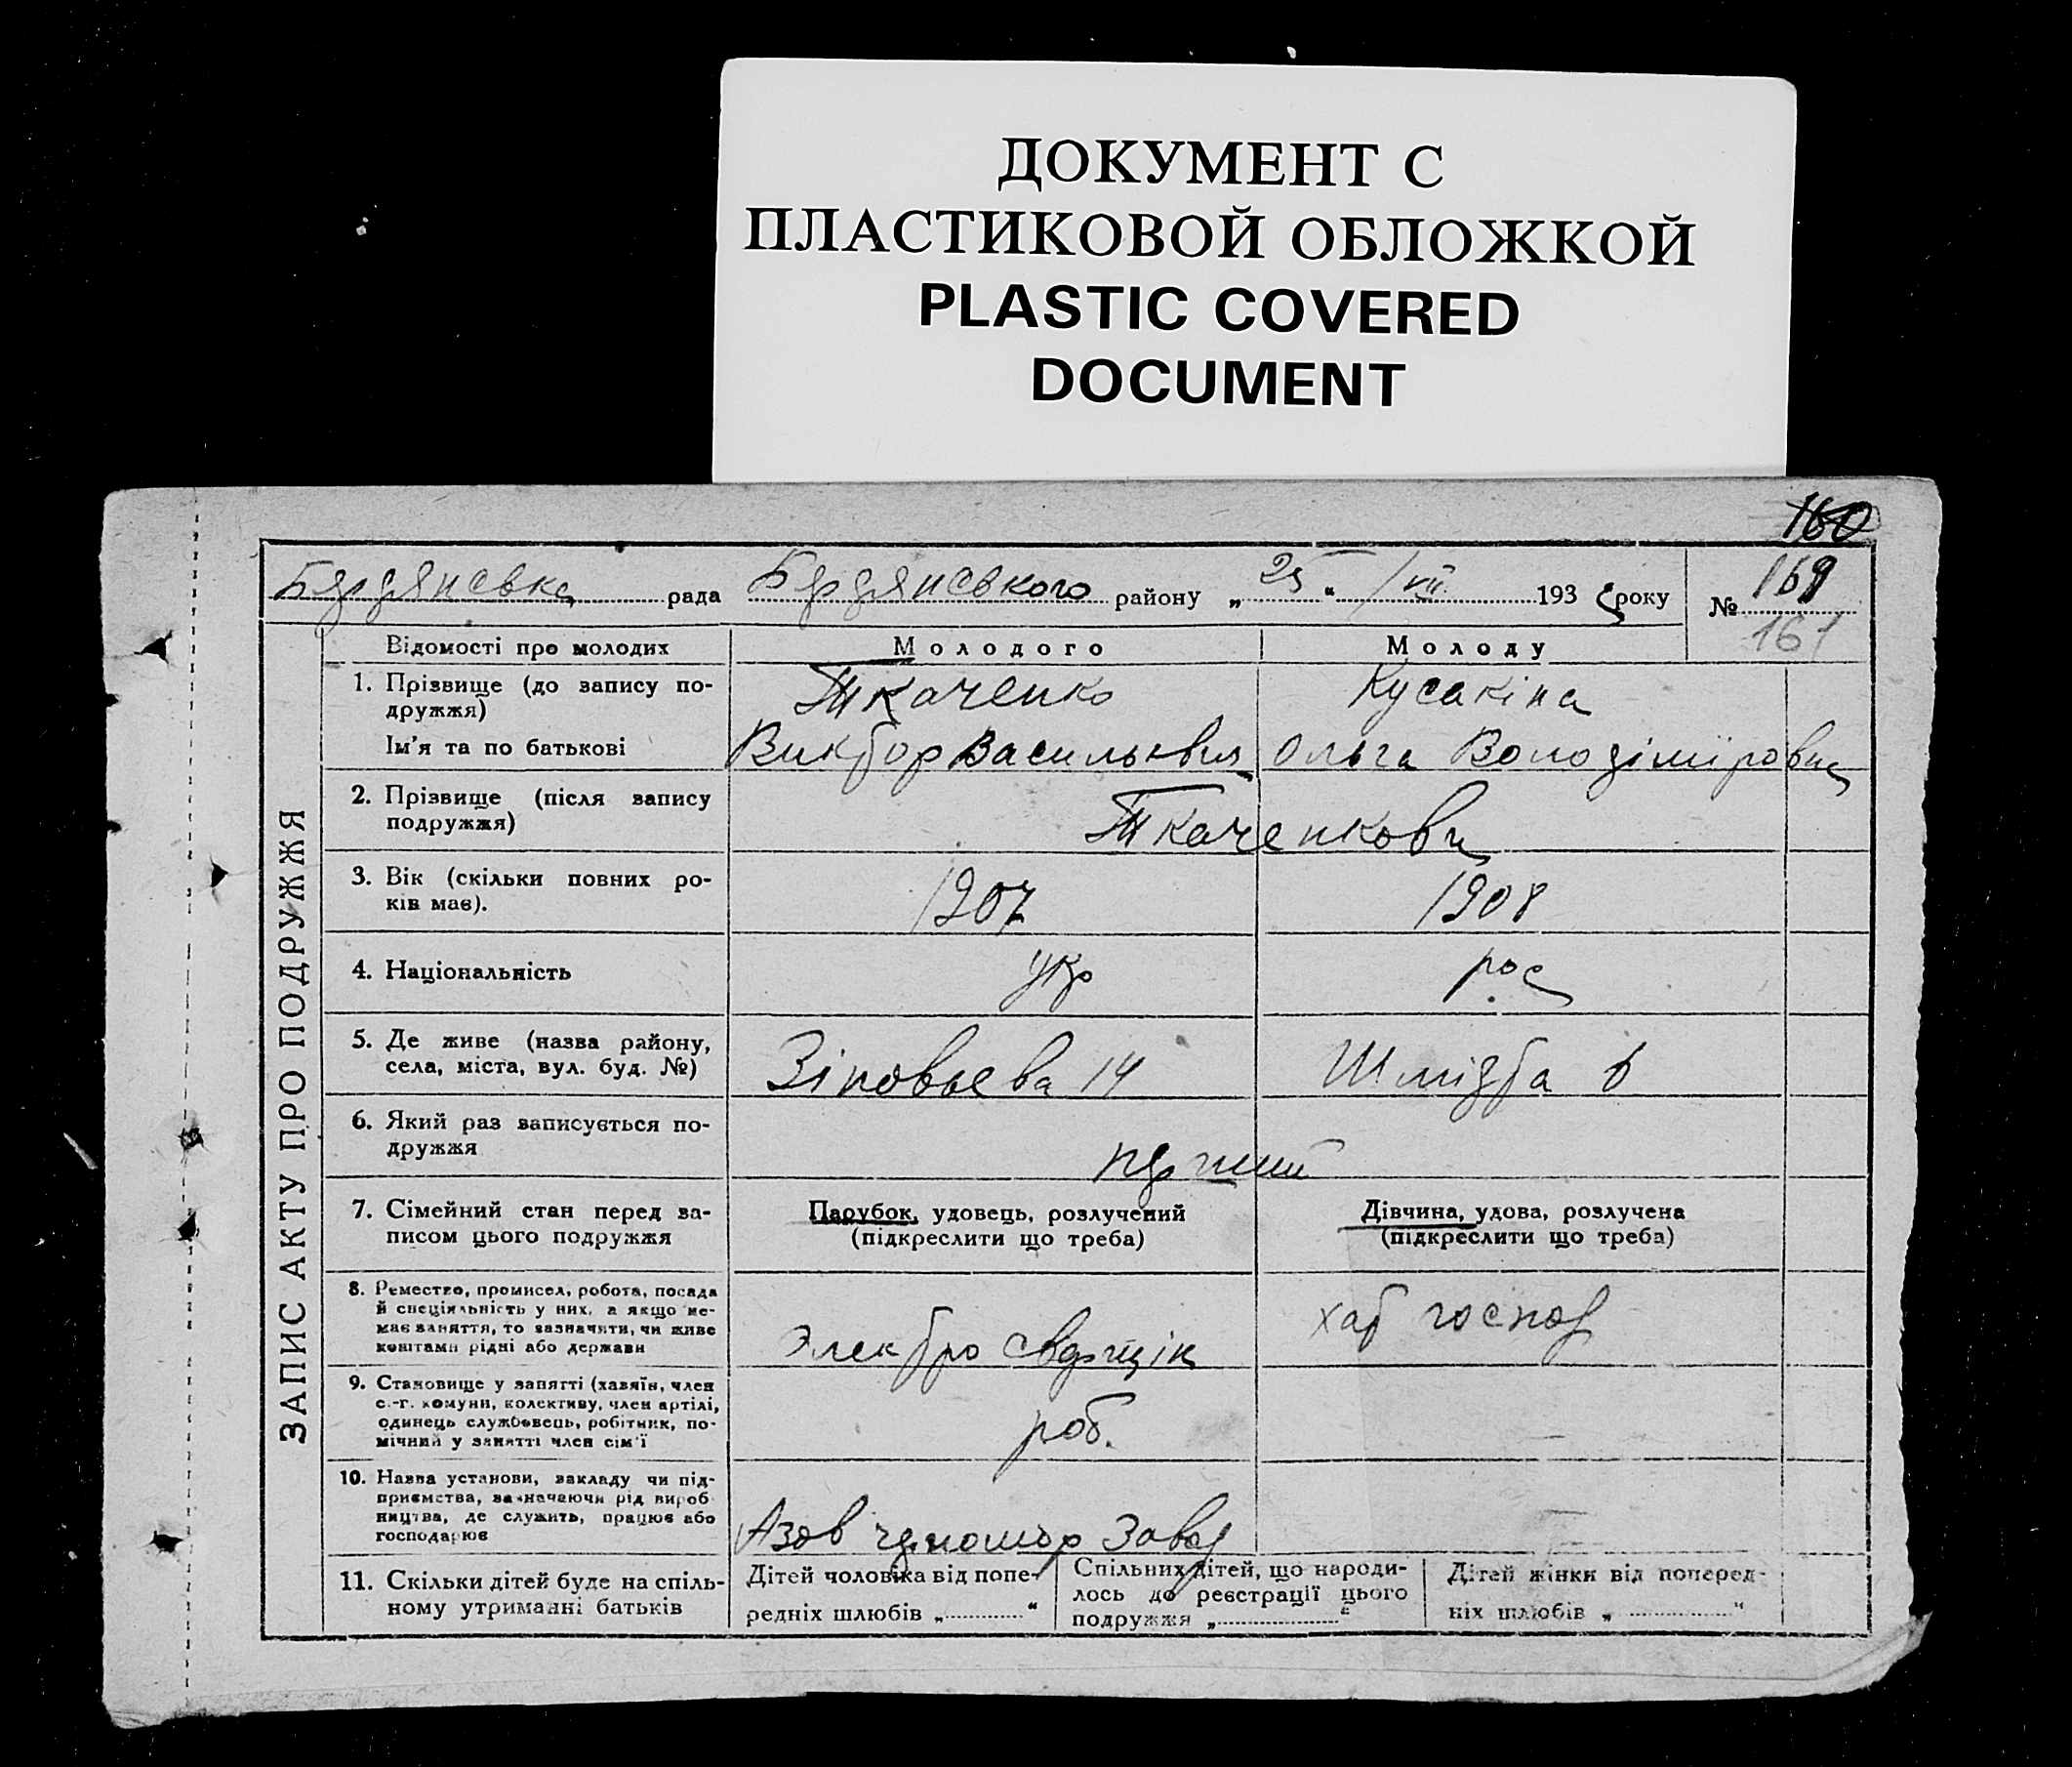 ДОКУМЕНТ С
ПЛАСТИКОВОЙ ОБЛОЖКОЙ
PLASTIC COVERED
DOCUMENT
160
Бердянська рада Бердянського району „25“ VII 193 року № 169
161
ЗАПИС АКТУ ПРО ПОДРУЖЖЯ
Відомості про молодих Молодого Молоду
1. Прізвище (до запису по-
дружжя) Ткаченко Кусакіна
Ім'я та по батькові Виктор Васильквич Ольга Володіміровна
2. Прізвище (після запису
подружжя) Ткаченкови
3. Вік (скільки повних ро-
ків має). 1907 1908
4. Національність укр рос
5. Де живе (назва району,
села, міста, вул. буд. №) Зіновьева 14 Шмідта 6
6. Який раз записується по-
дружжя перший
7. Сімейний стан перед за-
писом цього подружжя
Парубок, удовець, розлучений
(підкреслити що треба)
Дівчина, удова, розлучена
(підкреслити що треба)
8. Ремество, промисел, робота, посада
й спеціяльність у них, а якщо не-
має заняття, то зазначити, чи живе
коштами рідні або держави
Электро сварщік
хат господ
9. Становище у занятті (хазяїн, член
с.-г. комуни, колективу, член артілі,
одинець службовець, робітник, по-
мічний у занятті член сім'ї
роб.
10. Назва установи, закладу чи під-
приємства, зазначаючи рід вироб-
ництва, де служить, працює або
господарює
Азов черномор Завод
11. Скільки дітей буде на спіль-
ному утриманні батьків
Дітей чоловіка від попе-
редніх шлюбів „ “
Спільних дітей, що народи-
лось до реєстрації цього
подружжя „ “
Дітей жінки від поперед-
ніх шлюбів „ “